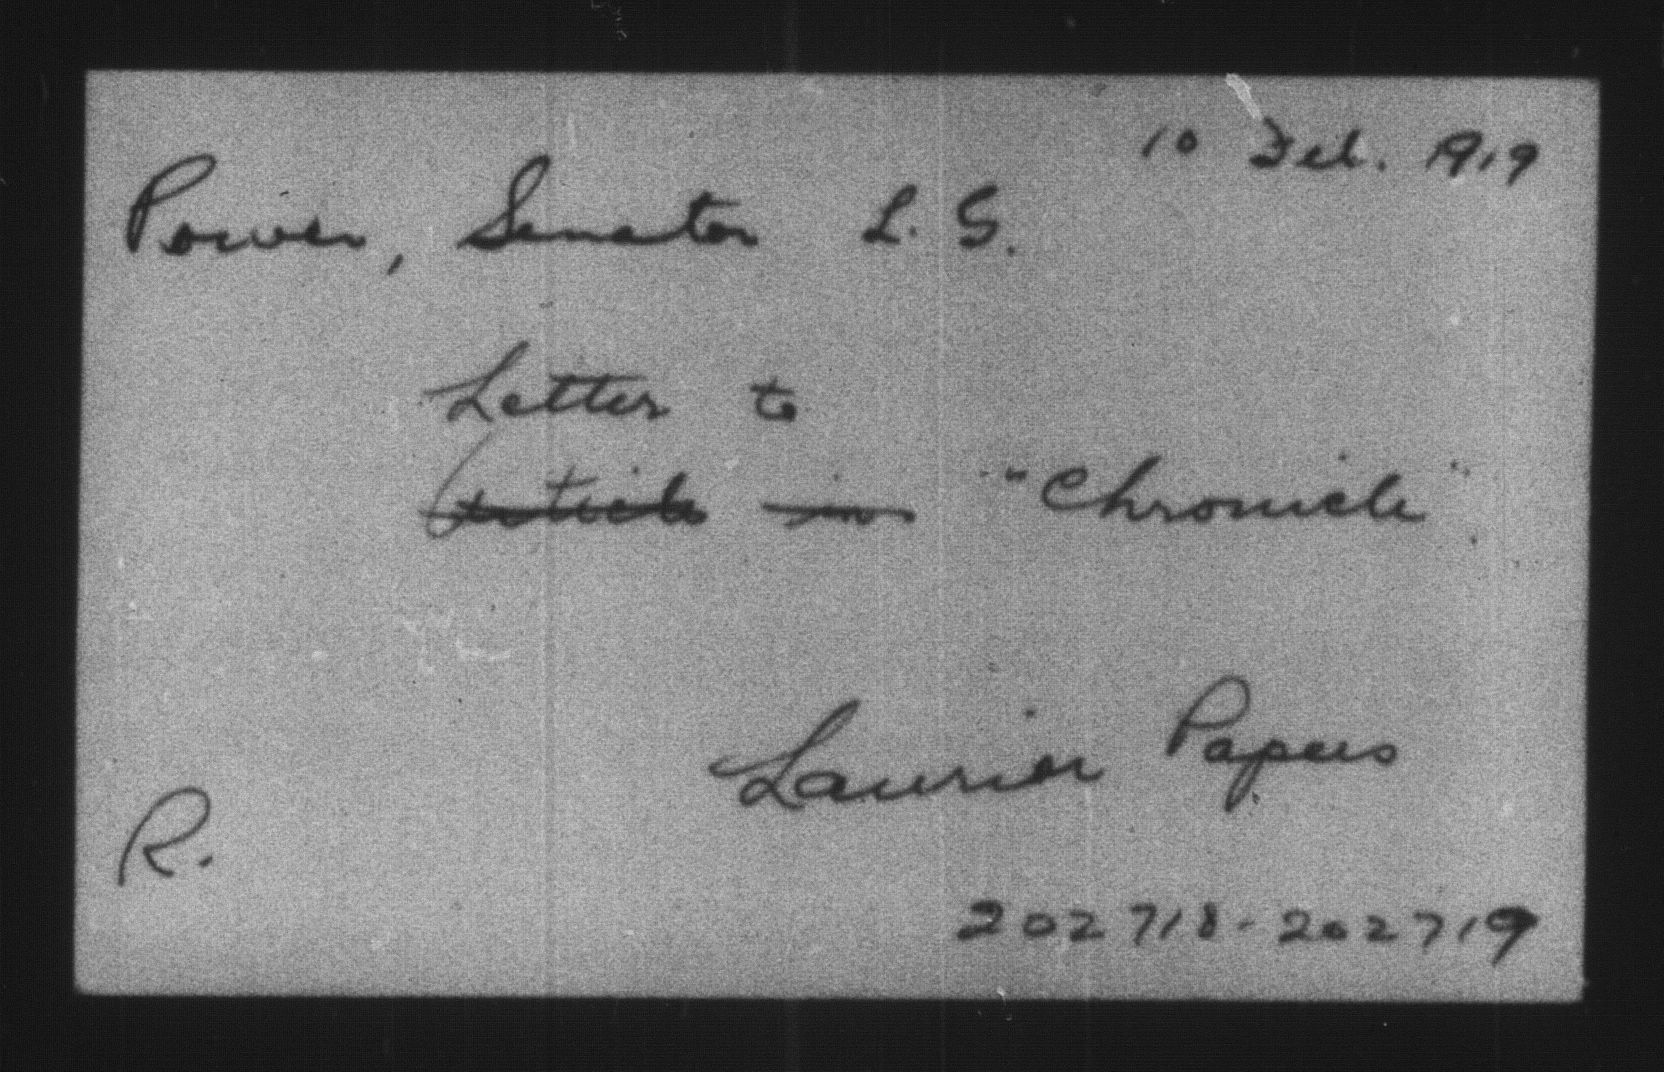 10 Feb. 1919
Power, Senator L. G.
Letter to
Article in "Chronicle"
Laurier Papers
R.
202718-202719